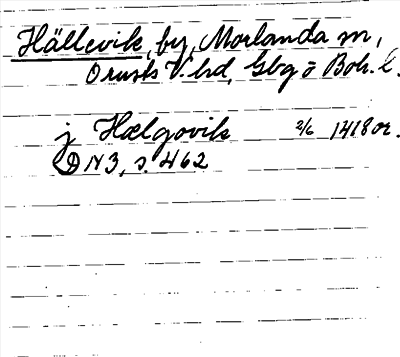 Hällevik, by, Morlanda sn,
Orusts V. hd, Gbg o Boh. l.
j Hælgovik 2/6 1418 or.
DN 3, s. 462